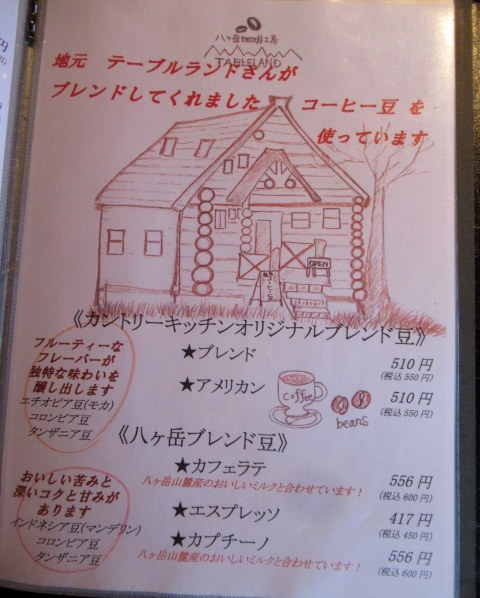 八ヶ岳珈琲工房
TABLELAND
地元 テーブルランドさんが
ブレンドしてくれました コーヒー豆 を
使っています
OPEN
《カントリーキッチンオリジナルブレンド豆》
フルーティーな
フレーバーが
独特な味わいを
醸し出します
エチオピア豆(モカ)
コロンビア豆
タンザニア豆
★ブレンド 510円
(税込550円)
★アメリカン 510円
(税込550円)
coffee
beans
《八ヶ岳ブレンド豆》
おいしい苦みと
深いコクと甘みが
あります
インドネシア豆(マンデリン)
コロンビア豆
タンザニア豆
★カフェラテ 556円
八ヶ岳山麓産のおいしいミルクと合わせています! (税込600円)
★エスプレッソ 417円
(税込450円)
★カプチーノ 556円
八ヶ岳山麓産のおいしいミルクと合わせています! (税込600円)